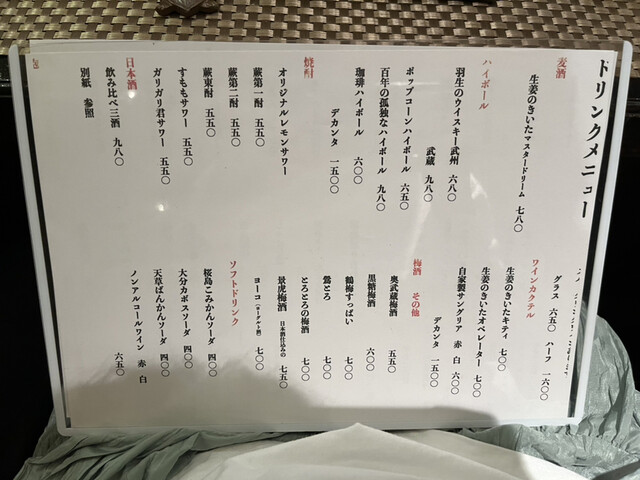 ドリンクメニュー
麦酒
生姜のきいたマスタードリーム 七八〇
ハイボール
羽生のウイスキー武州 六八〇
武蔵 九八〇
ポップコーンハイボール 六五〇
百年の孤独なハイボール 九八〇
珈琲ハイボール 六〇〇
デカンタ 一五〇〇
焼酎
オリジナルレモンサワー
蕨第一酎 五五〇
蕨第二酎 五五〇
蕨東酎 五五〇
すももサワー 五五〇
ガリガリ君サワー 五五〇
日本酒
飲み比べ三酒 九八〇
別紙 参照
グラス 六五〇 ハーフ 一六〇〇
ワインカクテル
生姜のきいたキティ 七〇〇
生姜のきいたオペレーター 七〇〇
自家製サングリア 赤 白 六〇〇
デカンタ 一五〇〇
梅酒 その他
奥武蔵梅酒 五五〇
黒糖梅酒 六〇〇
鶴梅すっぱい 七〇〇
鶯とろ 七〇〇
とろとろの梅酒 七〇〇
景虎梅酒 日本酒仕込みの 七五〇
ヨーコ(ヨーグルト酒) 七〇〇
ソフトドリンク
桜島こみかんソーダ 四〇〇
大分カボスソーダ 四〇〇
天草ばんかんソーダ 四〇〇
ノンアルコールワイン 赤 白 六五〇